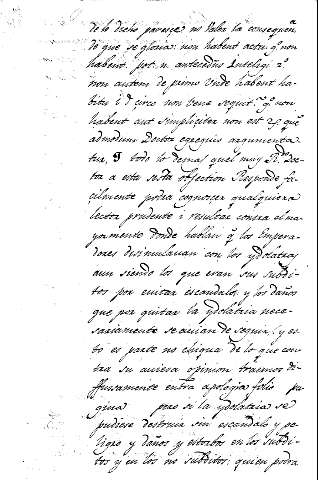 de lo dicho parece no Valer la consequen.ª
de que se gloria: non habent actu q.ª non
habent. pot. n. antecedens Intelligi 2.º
non autem de primo Unde habent ha-
bitu i d circo non bene sequit. q.ª non
habent aut simpliciter non est
admodum Doctor egregius argumenta
tur, y todo lo demas quel muy R.do Doc-
tor a esta sesta objection Responde fa-
cilmente podra cognoscer qualquiera
lector prudente i resultar contra el ma-
yormente donde hablan q. los Empera-
dores disimulavan con los ydolatras
aun siendo los que eran sus subdi-
tos por evitar escandalos, y los daños
que por quitar la ydolatria nece-
sariamente se avian de seguir, y es-
to es parte no chiqua de lo que con-
tra su aviesa opinion traemos di-
ffusamente en tra apologia folio pa-
gina pues si la ydolatria se
pudiese destruir sin escandalo y pe-
ligro y daños y estorbos en los subdi-
tos y en los no subditos; quien podra